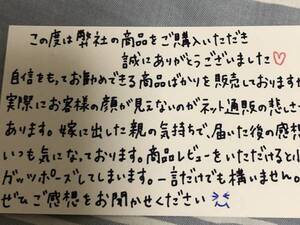 この度は弊社の商品をご購入いただき
誠にありがとうございました♡
自信をもってお勧めできる商品ばかりを販売しておりますが
実際にお客様の顔が見えないのがネット通販の悲しさ
あります。嫁に出した親の気持ちで、届いた後の感想
いつも気になっております。商品レビューをいただけると
ガッツポーズしてしまいます。一言だけでも構いません。
ぜひご感想をお聞かせください